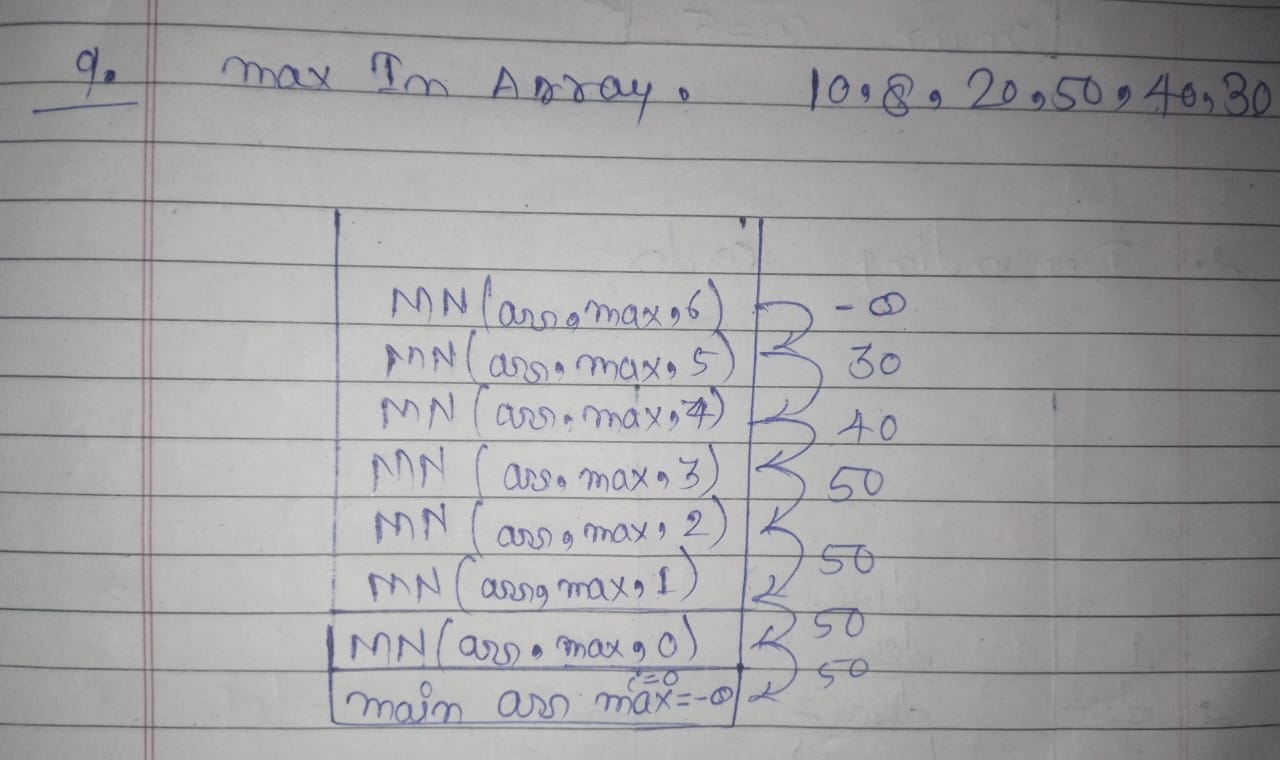 9. max In Array. 10, 8, 20, 50, 40, 30
MN (arr, max, 6) -∞
MN (arr, max, 5) 30
MN (arr, max, 4) 40
MN (arr, max, 3) 50
MN (arr, max, 2)
50
MN (arr, max, 1)
50
MN (arr, max, 0)
50
i=0
main arr max=-∞